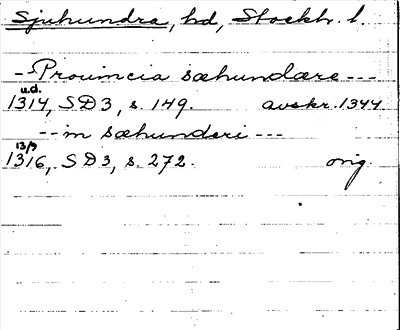 Sjuhundra, hd, Stockh. l.
--Prouincia sæhundære---
u.d.
1314, SD3, s. 149. avskr. 1344
--in sæhunderi---
13/9
1316, SD3, s. 272. orig.